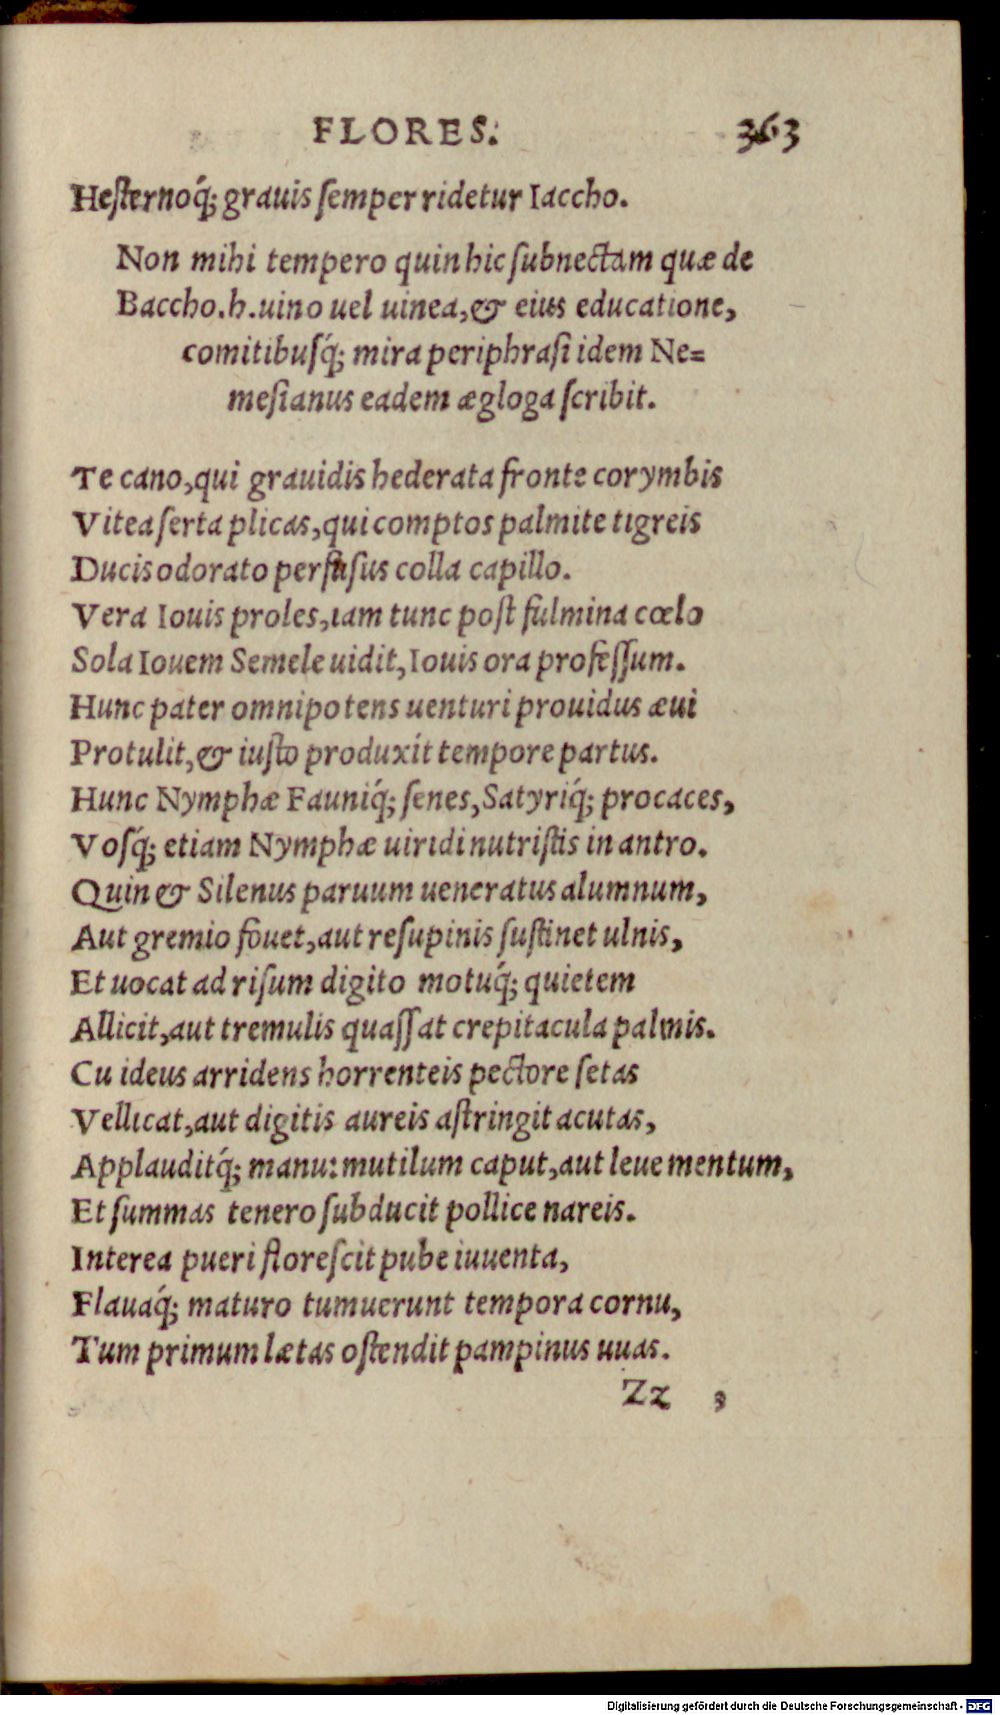 FLORES. 363
Hesternoq́; grauis semper ridetur Iaccho.
Non mihi tempero quin hic subnectam quæ de
Baccho.h.uino uel uinea,& eius educatione,
comitibusq́; mira periphrasi idem Ne=
mesianus eadem ægloga scribit.
Te cano,qui grauidis hederata fronte corymbis
Vitea serta plicas,qui comptos palmite tigreis
Ducis odorato perfusus colla capillo.
Vera Iouis proles,iam tunc post fulmina cœlo
Sola Iouem Semele uidit,Iouis ora professum.
Hunc pater omnipotens uenturi prouidus æui
Protulit,& iusto produxit tempore partus.
Hunc Nymphæ Fauniq́; senes,Satyriq́; procaces,
Vosq́; etiam Nymphæ uiridi nutristis in antro.
Quin & Silenus paruum ueneratus alumnum,
Aut gremio fouet,aut resupinis sustinet ulnis,
Et uocat ad risum digito motuq́; quietem
Allicit,aut tremulis quassat crepitacula palmis.
Cu ideus arridens horrenteis pectore setas
Vellicat,aut digitis aureis astringit acutas,
Applauditq́; manu:mutilum caput,aut leue mentum,
Et summas tenero subducit pollice nareis.
Interea pueri florescit pube iuuenta,
Flauaq́; maturo tumuerunt tempora cornu,
Tum primum lætas ostendit pampinus uuas.
Zz 3
Digitalisierung gefördert durch die Deutsche Forschungsgemeinschaft - DFG